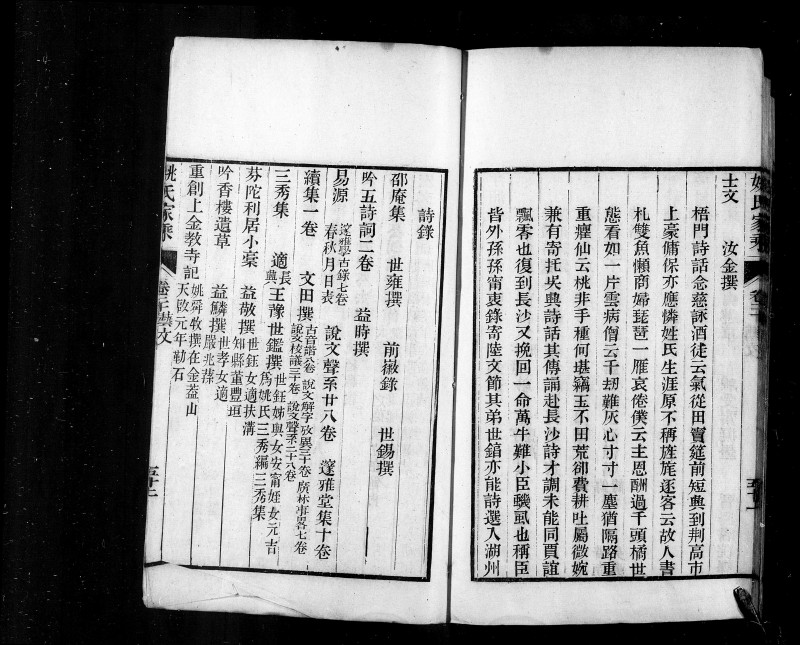 姚氏家乘 卷二十 五十一
士文 汝金撰
梧門詩話念慈詠酒徒云氣從田竇筵前短興到荆高市
上豪傭保亦應憐姓氏生涯原不稱旌旄逐客云故人書
札雙魚懶商婦琵琶一雁哀倦僕云主恩酬過千頭橘世
態看如一片雲病僧云千刼難灰心寸寸一塵猶隔路重
重癯仙云桃非手種何堪竊玉不田荒卻費耕吐屬微婉
兼有寄托吳興詩話其傳誦赴長沙詩才調未能同賈誼
飄零也復到長沙又挽回一命萬牛難小臣蟣虱也稱臣
皆外孫孫甯衷錄寄陸文節其弟世錧亦能詩選入湖州
詩錄
邵庵集 世雍撰 前徽錄 世錫撰
吟五詩詞二卷 益時撰
易源 邃雅學古錄七卷 春秋月日表 說文聲系廿八卷 邃雅堂集十卷
續集一卷 文田撰 古音諧八卷 說文解字攷異三十卷 廣林事畧七卷 說文校議三十卷 說文聲系二十八卷
三秀集 適長興王豫世鑑撰 世鈺姊與女安甯姪女元吉爲姚氏三秀編三秀集
芬陀利居小稾 益敬撰 世鈺女適扶溝知縣董豐垣
吟香樓遺草 益鱗撰 世孝女適嚴兆葆
重創上金教寺記 姚舜牧撰在金蓋山天啟元年勒石
姚氏家乘 卷二十 藝文 五十二